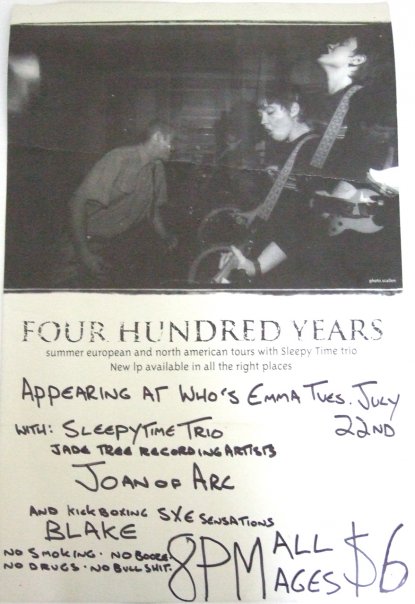 photo.scallen
FOUR HUNDRED YEARS
summer european and north american tours with Sleepy Time trio
New lp available in all the right places
APPEARING AT WHO'S EMMA TUES. JULY
22ND
WITH: SLEEPYTIME TRIO
JADE TREE RECORDING ARTISTS
JOAN OF ARC
AND KICKBOXING SXE SENSATIONS
BLAKE
NO SMOKING · NO BOOZE ·
NO DRUGS · NO BULLSHIT ·
8PM ALL AGES $6